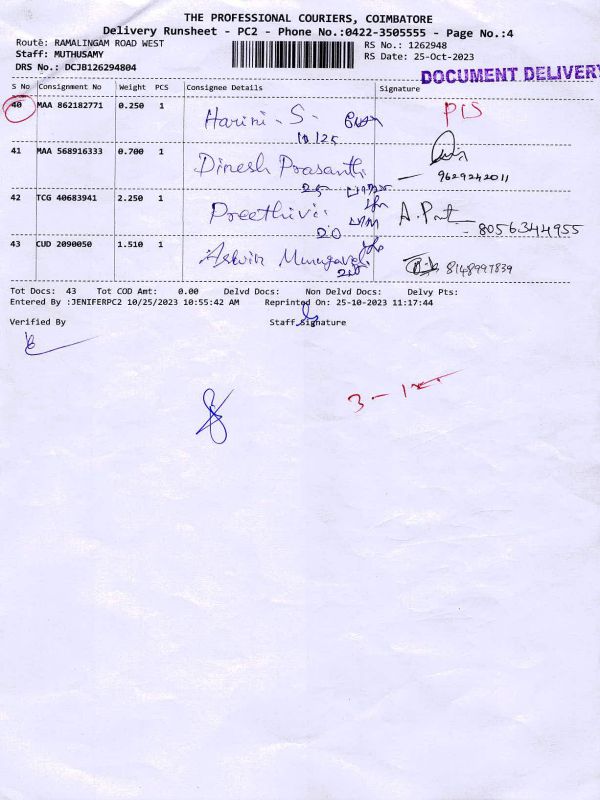 THE PROFESSIONAL COURIERS, COIMBATORE
Delivery Runsheet - PC2 - Phone No.:0422-3505555 - Page No.:4
Route: RAMALINGAM ROAD WEST
RS No.: 1262948
Staff: MUTHUSAMY
RS Date: 25-Oct-2023
DRS No.: DCJB126294804
DOCUMENT DELIVERY
S No Consignment No Weight PCS Consignee Details Signature
40 MAA 862182771 0.250 1 Harini - S -
41 MAA 568916333 0.700 1 Dinesh Prasanth
9629242011
42 TCG 40683941 2.250 1 Preethivi
8056344955
43 CUD 2090050 1.510 1 Ashwin Murugavel 8148997839
Tot Docs: 43 Tot COD Amt: 0.00 Delvd Docs: Non Delvd Docs: Delvy Pts:
Entered By :JENIFERPC2 10/25/2023 10:55:42 AM Reprinted On: 25-10-2023 11:17:44
Verified By Staff Signature